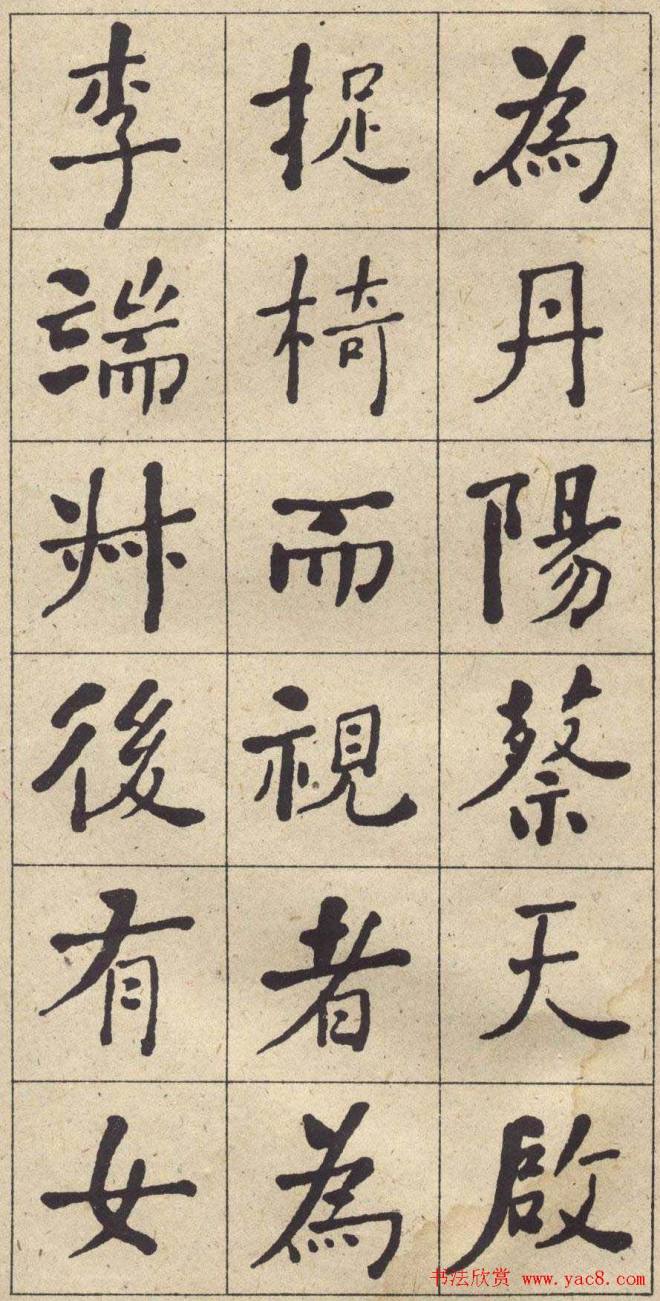 為丹陽蔡天啟
捉椅而視者為
李端叔後有女
书法欣赏 www.yac8.com